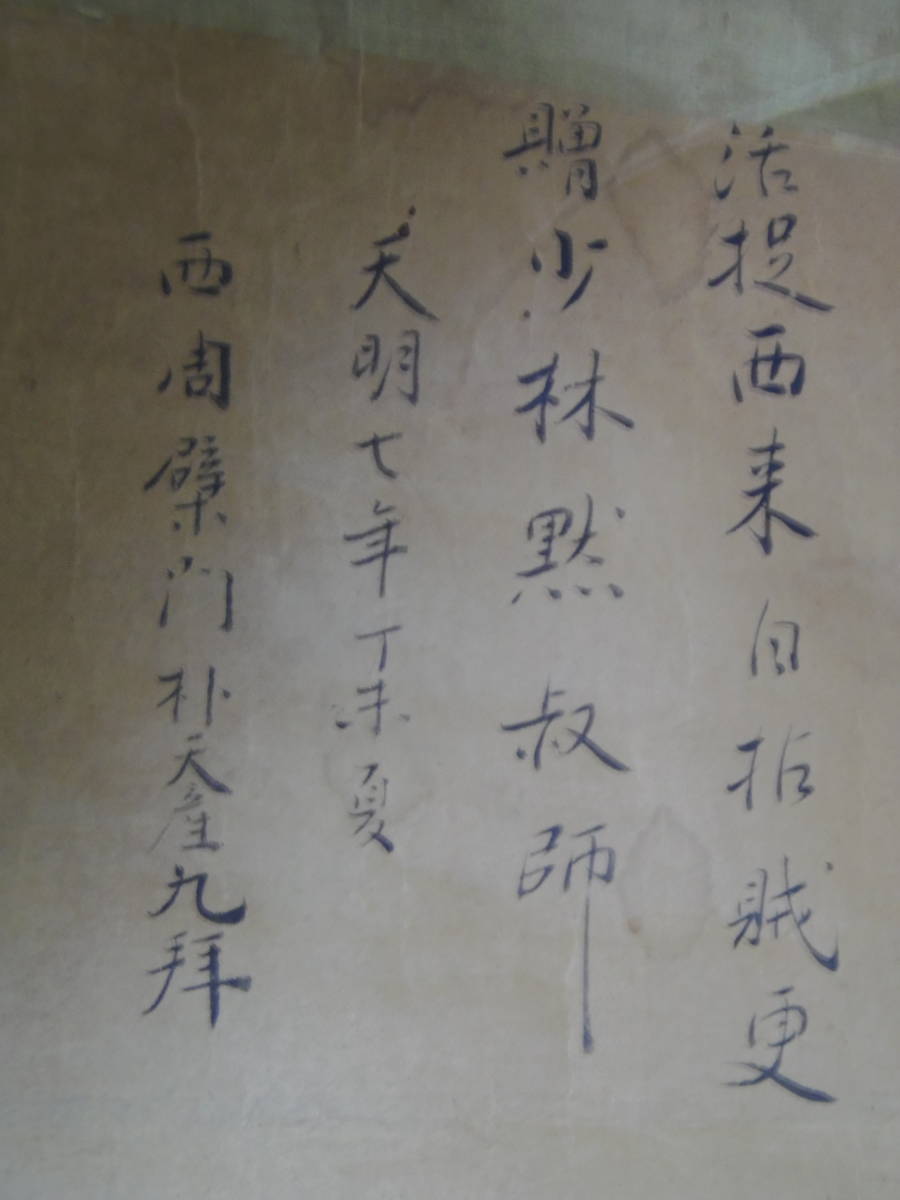 活捉西来白拈賊更
贈少林黙叔師
天明七年丁未夏
西周檗門朴天産九拝